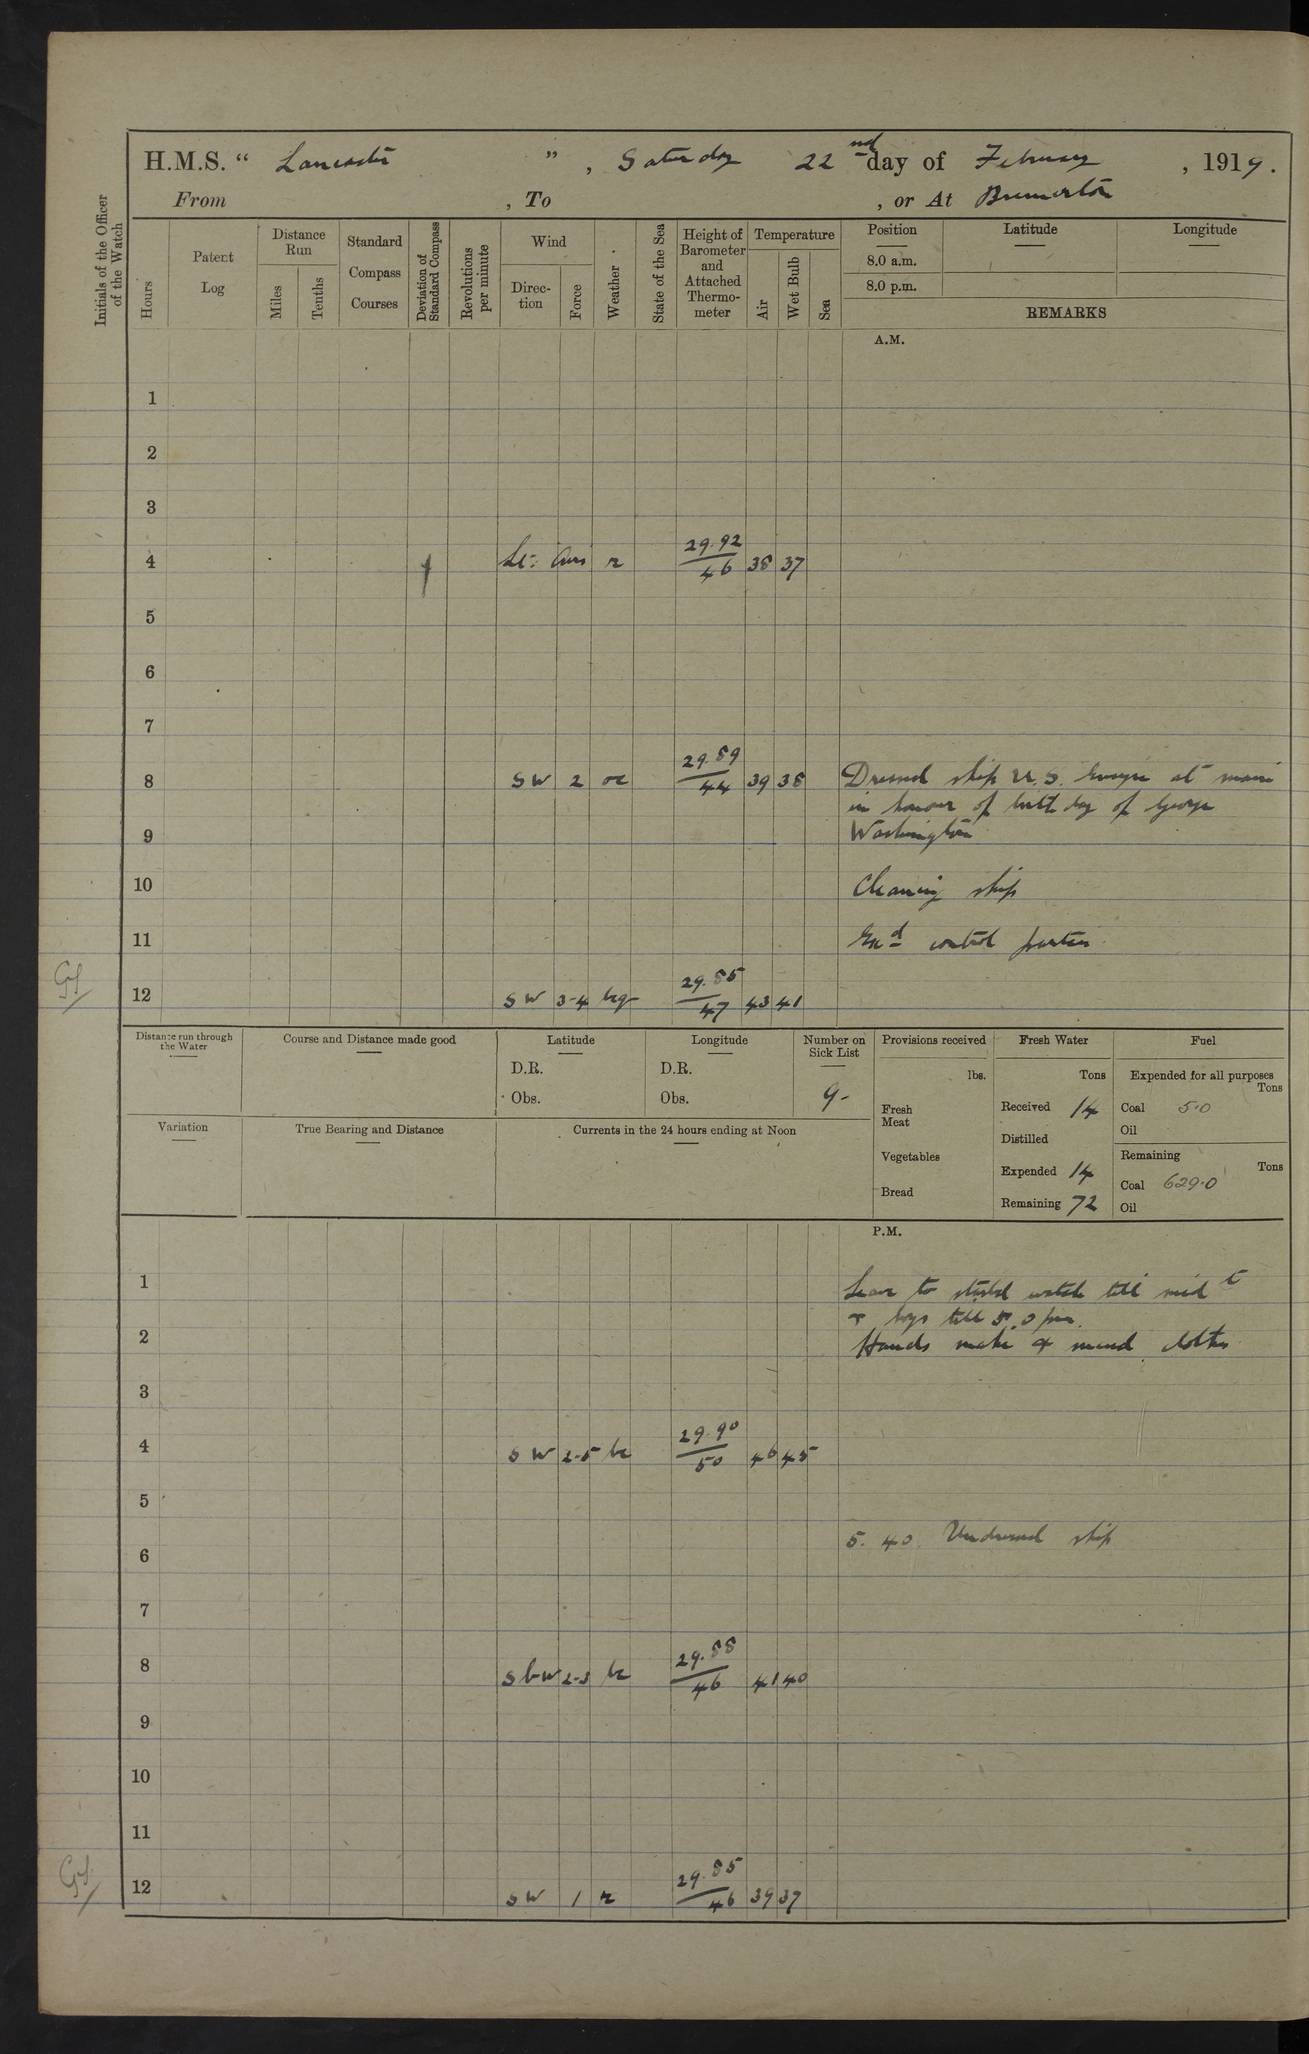 H.M.S. “ Lancaster ” , Saturday 22nd day of February , 1919.
From , To , or At Bremerton
Initials of the Officer of the Watch
Hours
Patent Log
Distance Run
Miles
Tenths
Standard Compass Courses
Deviation of Standard Compass
Revolutions per minute
Wind
Direc-tion
Force
Weather
State of the Sea
Height of Barometer and Attached Thermo-meter
Temperature
Air
Wet Bulb
Sea
Position Latitude Longitude
8.0 a.m.
8.0 p.m.
REMARKS
A.M.
1
2
3
4 Lt: Airs r 29.92 46 38 37
5
6
7
8 SW 2 oc 29.89 44 39 38 Dressed ship U.S. Ensign at main
in honour of birthday of George
9 Washington
10 Cleaning ship
11 Exd control parties
12 SW 3-4 29.85 47 43 41
Distance run through the Water
Course and Distance made good
Latitude
D.R.
Obs.
Longitude
D.R.
Obs.
Number on Sick List
9-
Provisions received
lbs.
Fresh Meat
Vegetables
Bread
Fresh Water
Tons
Received 14
Distilled
Expended 14
Remaining 72
Fuel
Expended for all purposes
Tons
Coal 5.0
Oil
Remaining
Tons
Coal 629.0
Oil
Variation
True Bearing and Distance
Currents in the 24 hours ending at Noon
P.M.
1 Leave to starbd watch till midt
boys till 5.0 pm.
2 Hands make & mend clothes
3
4 SW 2-5 bc 29.90 50 46 45
5
5.40 Undressed ship
6
7
8 SbW 2-3 bc 29.88 46 41 40
9
10
11
12 SW 1 r 29.85 46 39 37